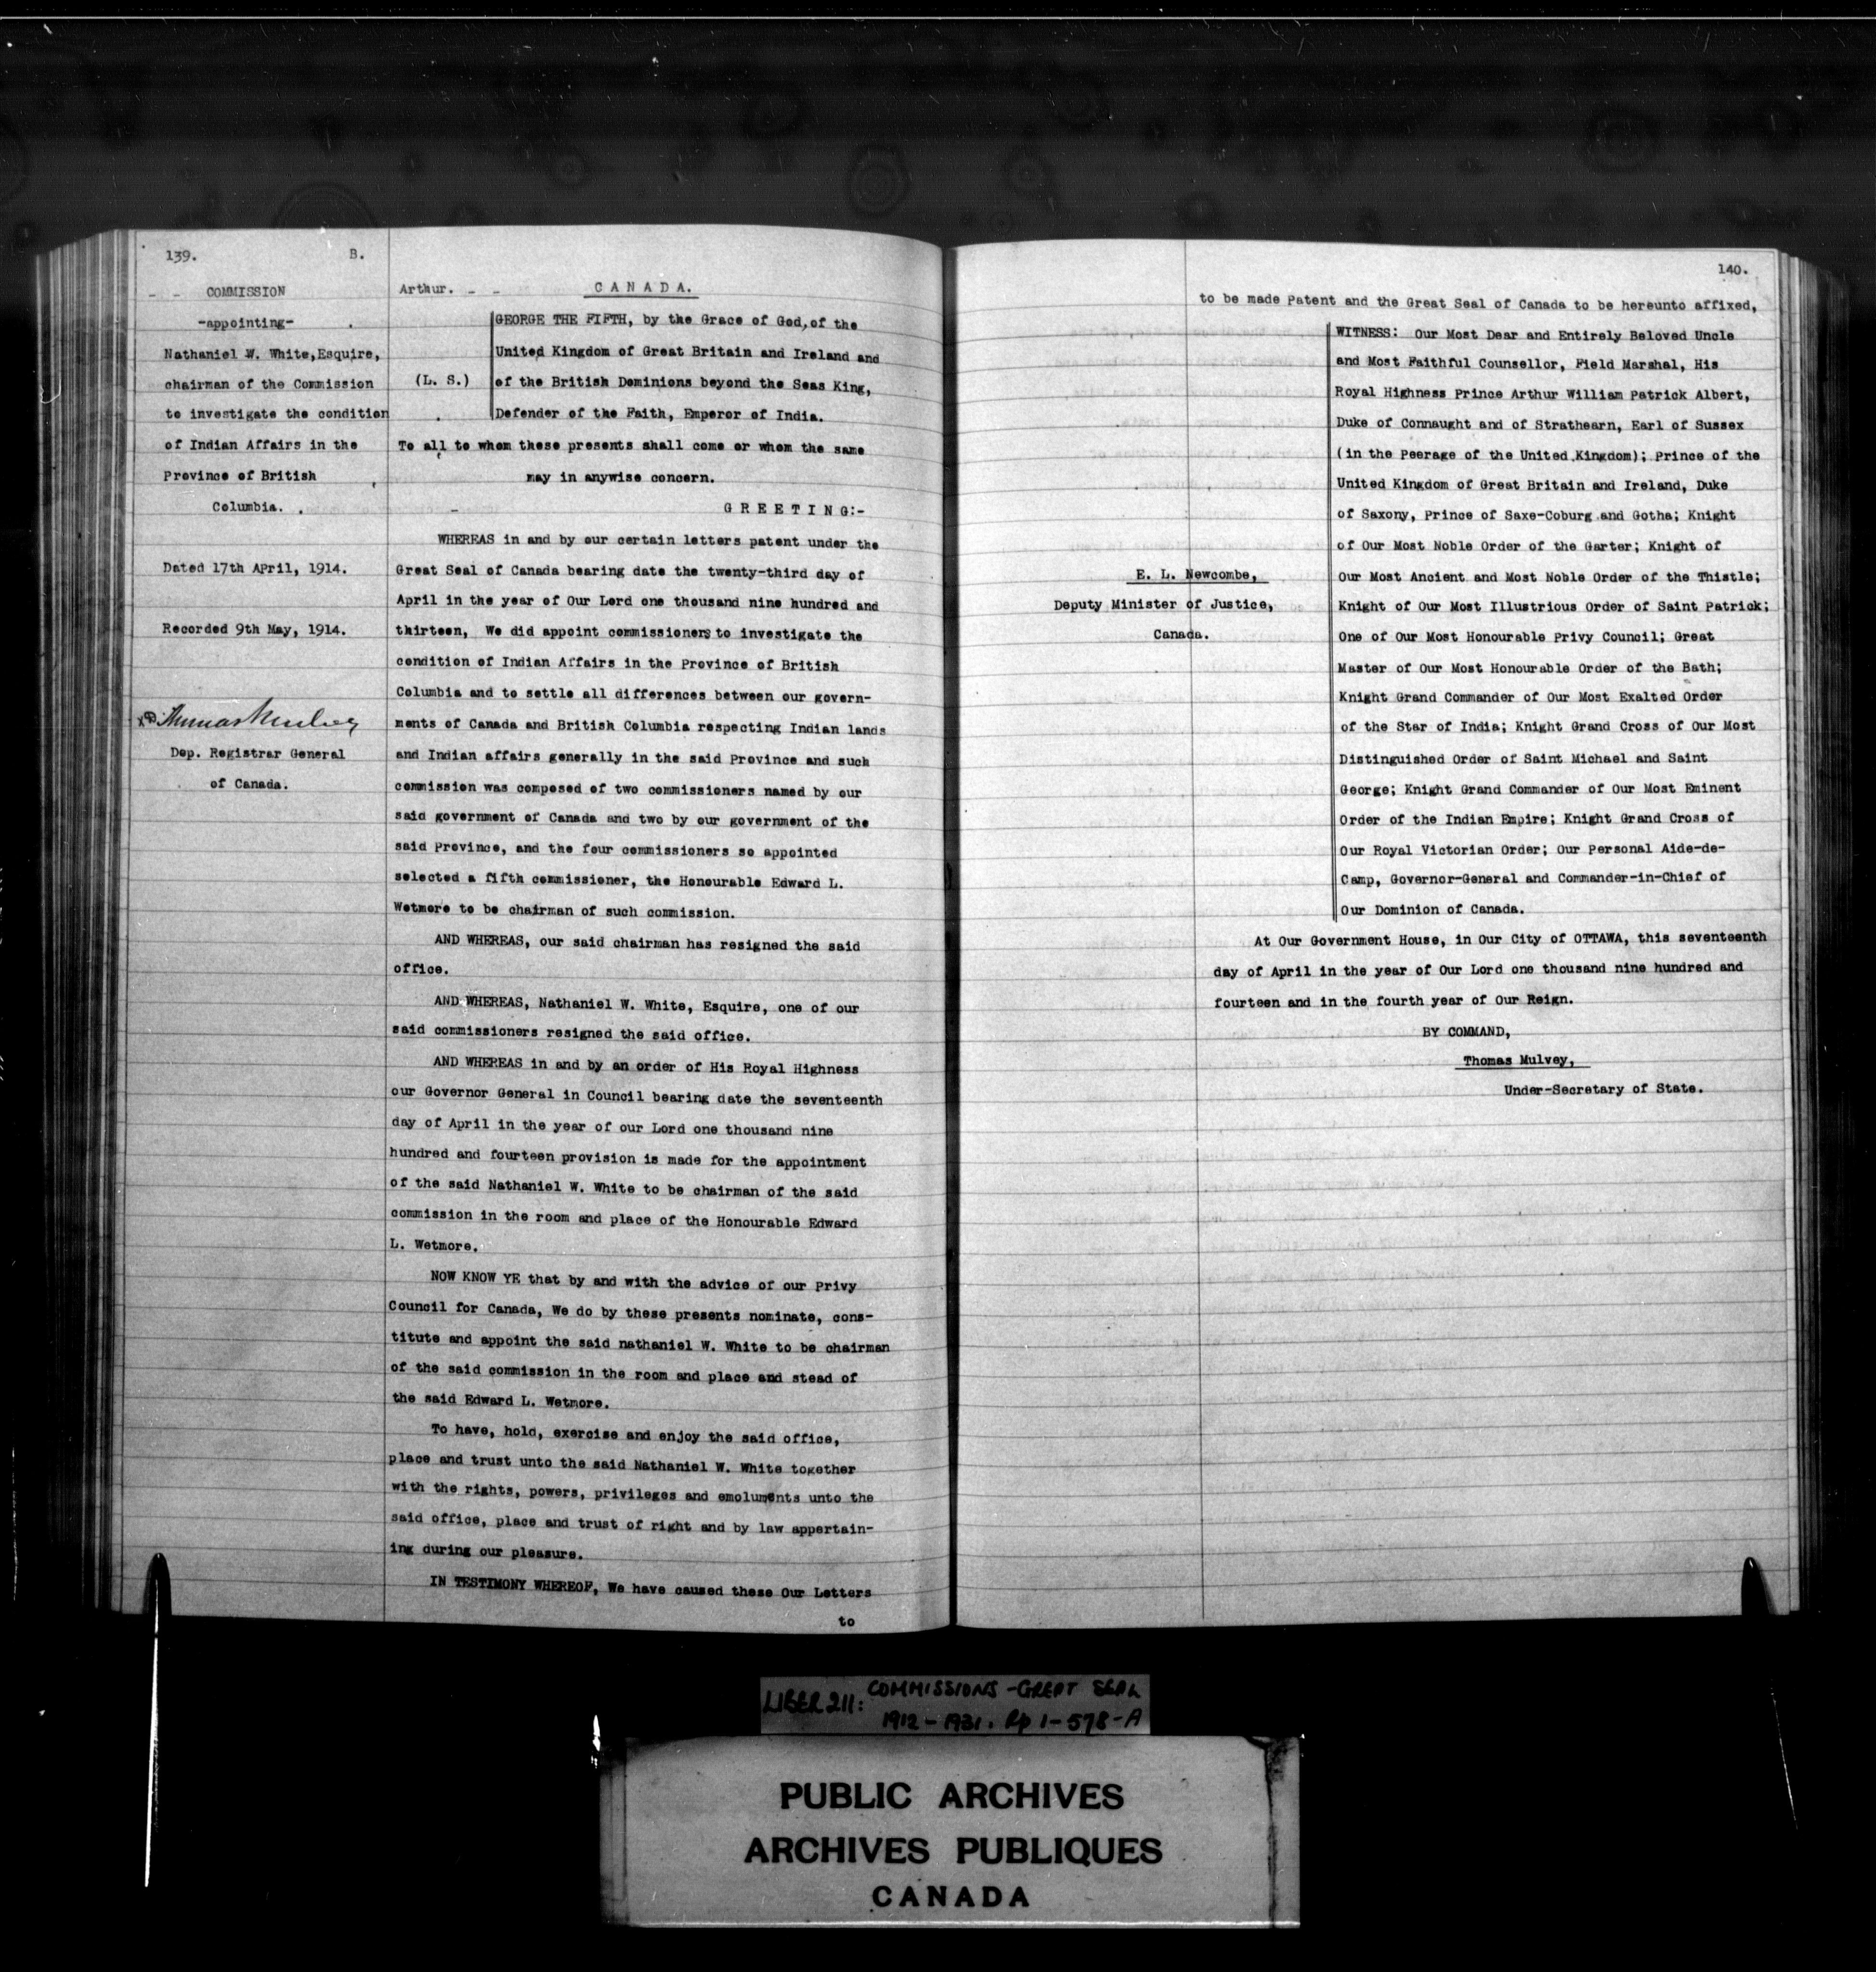 139. B.
COMMISSION
-appointing-
Nathaniel W. White,Esquire,
chairman of the Commission
to investigate the condition
of Indian Affairs in the
Province of British
Columbia.
Dated 17th April, 1914.
Recorded 9th May, 1914.
Thomas Mulvey
Dep. Registrar General
of Canada.
Arthur. - - CANADA.
(L. S.)
GEORGE THE FIFTH, by the Grace of God, of the
United Kingdom of Great Britain and Ireland and
of the British Dominions beyond the Seas King,
Defender of the Faith, Emperor of India.
To all to whom these presents shall come or whom the same
may in anywise concern.
GREETING:-
WHEREAS in and by our certain letters patent under the
Great Seal of Canada bearing date the twenty-third day of
April in the year of Our Lord one thousand nine hundred and
thirteen, We did appoint commissioners to investigate the
condition of Indian Affairs in the Province of British
Columbia and to settle all differences between our govern-
ments of Canada and British Columbia respecting Indian lands
and Indian affairs generally in the said Province and such
commission was composed of two commissioners named by our
said government of Canada and two by our government of the
said Province, and the four commissioners so appointed
selected a fifth commissioner, the Honourable Edward L.
Wetmore to be chairman of such commission.
AND WHEREAS, our said chairman has resigned the said
office.
AND WHEREAS, Nathaniel W. White, Esquire, one of our
said commissioners resigned the said office.
AND WHEREAS in and by an order of His Royal Highness
our Governor General in Council bearing date the seventeenth
day of April in the year of our Lord one thousand nine
hundred and fourteen provision is made for the appointment
of the said Nathaniel W. White to be chairman of the said
commission in the room and place of the Honourable Edward
L. Wetmore.
NOW KNOW YE that by and with the advice of our Privy
Council for Canada, We do by these presents nominate, cons-
titute and appoint the said nathaniel W. White to be chairman
of the said commission in the room and place and stead of
the said Edward L. Wetmore.
To have, hold, exercise and enjoy the said office,
place and trust unto the said Nathaniel W. White together
with the rights, powers, privileges and emoluments unto the
said office, place and trust of right and by law appertain-
ing during our pleasure.
IN TESTIMONY WHEREOF, We have caused these Our Letters
to
140.
to be made Patent and the Great Seal of Canada to be hereunto affixed,
WITNESS: Our Most Dear and Entirely Beloved Uncle
and Most Faithful Counsellor, Field Marshal, His
Royal Highness Prince Arthur William Patrick Albert,
Duke of Connaught and of Strathearn, Earl of Sussex
(in the Peerage of the United Kingdom); Prince of the
United Kingdom of Great Britain and Ireland, Duke
of Saxony, Prince of Saxe-Coburg and Gotha; Knight
of Our Most Noble Order of the Garter; Knight of
Our Most Ancient and Most Noble Order of the Thistle;
Knight of Our Most Illustrious Order of Saint Patrick;
One of Our Most Honourable Privy Council; Great
Master of Our Most Honourable Order of the Bath;
Knight Grand Commander of Our Most Exalted Order
of the Star of India; Knight Grand Cross of Our Most
Distinguished Order of Saint Michael and Saint
George; Knight Grand Commander of Our Most Eminent
Order of the Indian Empire; Knight Grand Cross of
Our Royal Victorian Order; Our Personal Aide-de-
Camp, Governor-General and Commander-in-Chief of
Our Dominion of Canada.
E. L. Newcombe,
Deputy Minister of Justice,
Canada.
At Our Government House, in Our City of OTTAWA, this seventeenth
day of April in the year of Our Lord one thousand nine hundred and
fourteen and in the fourth year of Our Reign.
BY COMMAND,
Thomas Mulvey,
Under-Secretary of State.
LIBER 211: COMMISSIONS - GREAT SEAL
1912-1931. Pp 1-578-A
PUBLIC ARCHIVES
ARCHIVES PUBLIQUES
CANADA